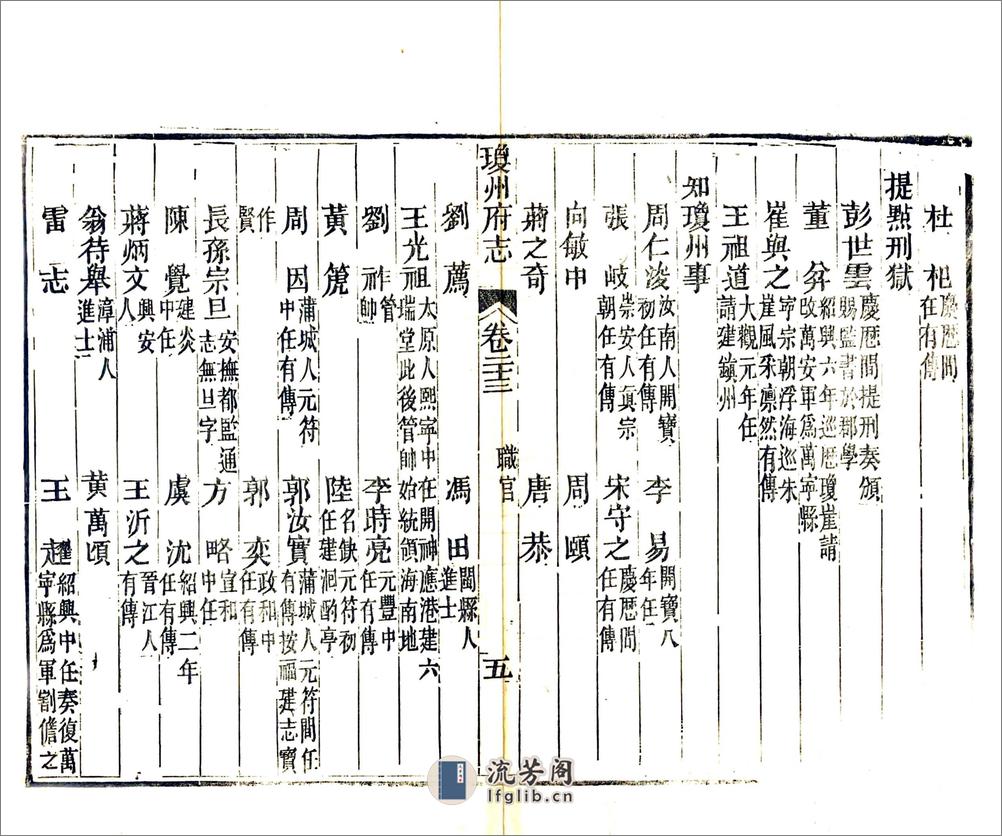 杜杞慶歴間在有傳
提點刑獄
彭世雲慶歴間提刑奏頒賜監書於郡學
董弅紹興六年巡歴瓊崖請改萬安軍爲萬寧縣
崔與之寧宗朝浮海巡朱崖風釆凛然有傳
王祖道大觀元年任請建鎭州
知瓊州事
周仁浚汝南人開寶初任有傳 李易開寶八年任
張岐崇安人眞宗朝任有傳 宋守之慶歴間任有傳
向敏中 周頤
蔣之奇 唐恭
瓊州府志 卷二十三 職官 五
劉薦 馮田閩縣人進士
王光祖太原人熙寧中在開神應港建六瑞堂此後管帥始統領海南地
劉祚管帥 李時亮元豐中任有傳
黃篪 陸名缺元符初任建洄酌亭
周因蒲城人元符中任有傳 郭汝賢蒲城人元符間任有傳按福建志寶
作賢 郭奕政和中任有傳
長孫宗旦安撫都監通志無旦字 方略宣和中任
陳覺建炎中任 虞沈紹興二年任有傳
蔣炳文興安人 王沂之晉江人有傳
翁待舉漳浦人進士 黄萬頃
雷志 王趯紹興中任奏復萬寧縣爲軍割儋之
流芳阁
lfglib.cn